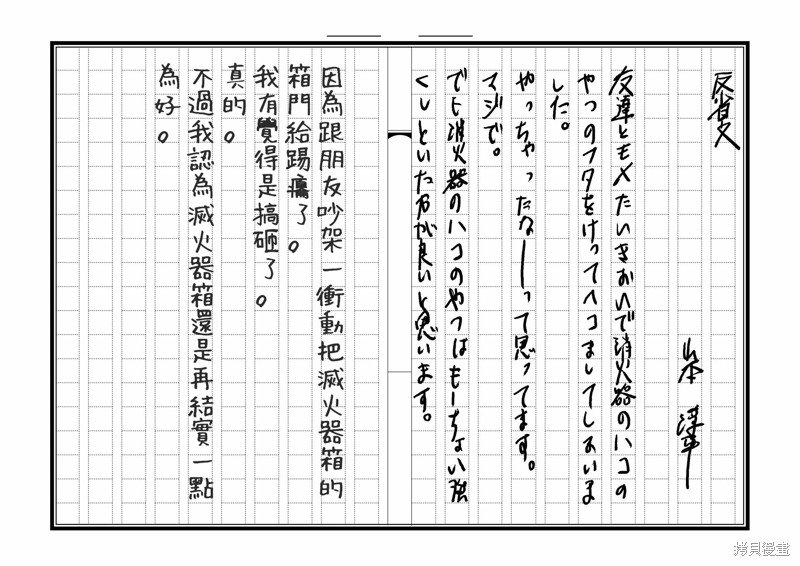 反省文
山本 淳平
友達とモメたいきおいで消火器のハコの
やつのフタをけってヘコましてしまいま
した。
やっちゃったなーーって思ってます。
マジで。
でも消火器のハコのやつはもーちょい強
くしといた方が良いと思います。
因為跟朋友吵架一衝動把滅火器箱的
箱門給踢癟了。
我有覺得是搞砸了。
真的。
不過我認為滅火器箱還是再結實一點
為好。
拷貝漫畫